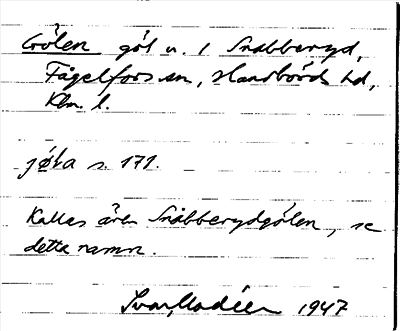 Gölen göl n. i Snabberyd,
Fågelfors sn, Handbörds hd,
Klm. l.
jøla s. 171.
Kallas även Snabberydgölen, se
detta namn.
Ivar Modéer 1947